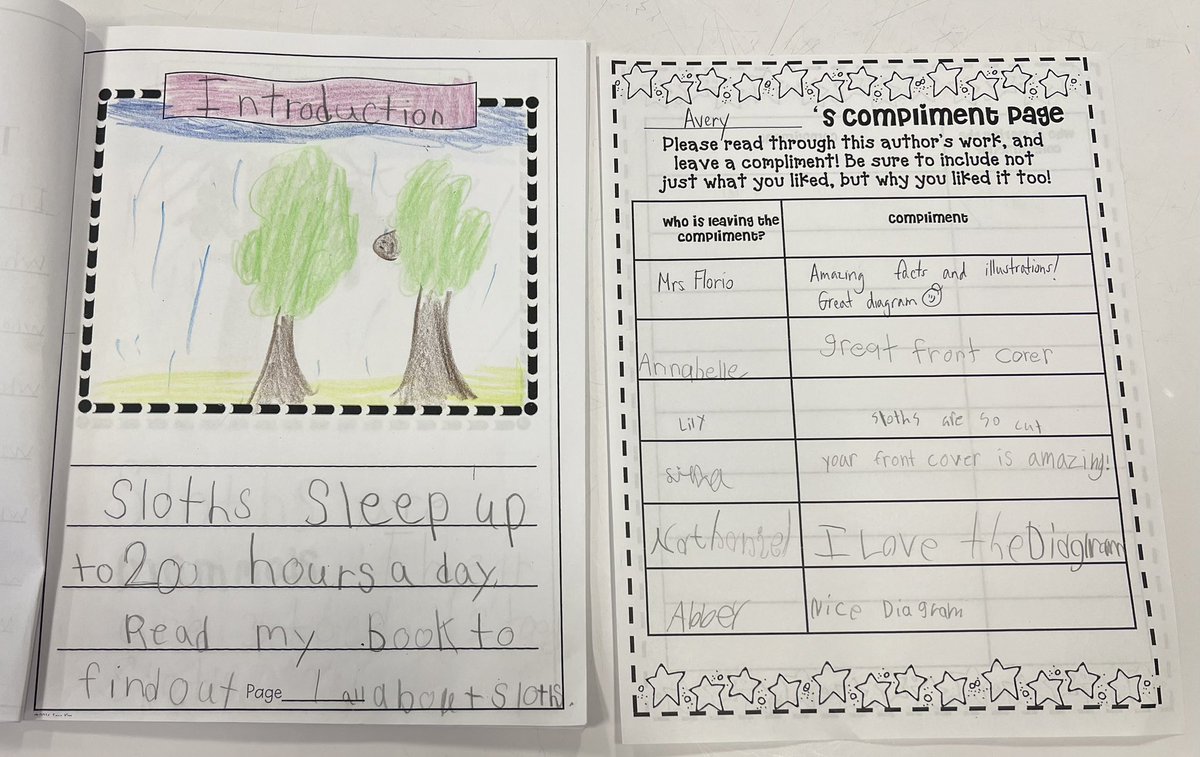 Introduction
Sloths Sleep up
to 20 hours a day.
Read my book to
find out Page 1 all about sloths.
Avery 's Compliment Page
Please read through this author's work, and
leave a compliment! Be sure to include not
just what you liked, but why you liked it too!
who is leaving the compliment?
compliment
Mrs Florio
Amazing facts and illustrations!
Great diagram
Annabelle
great front corer
Lily
sloths are so cut
your front cover is amazing!
Nathaniel
I Love the Diagram
Abber
Nice Diagram